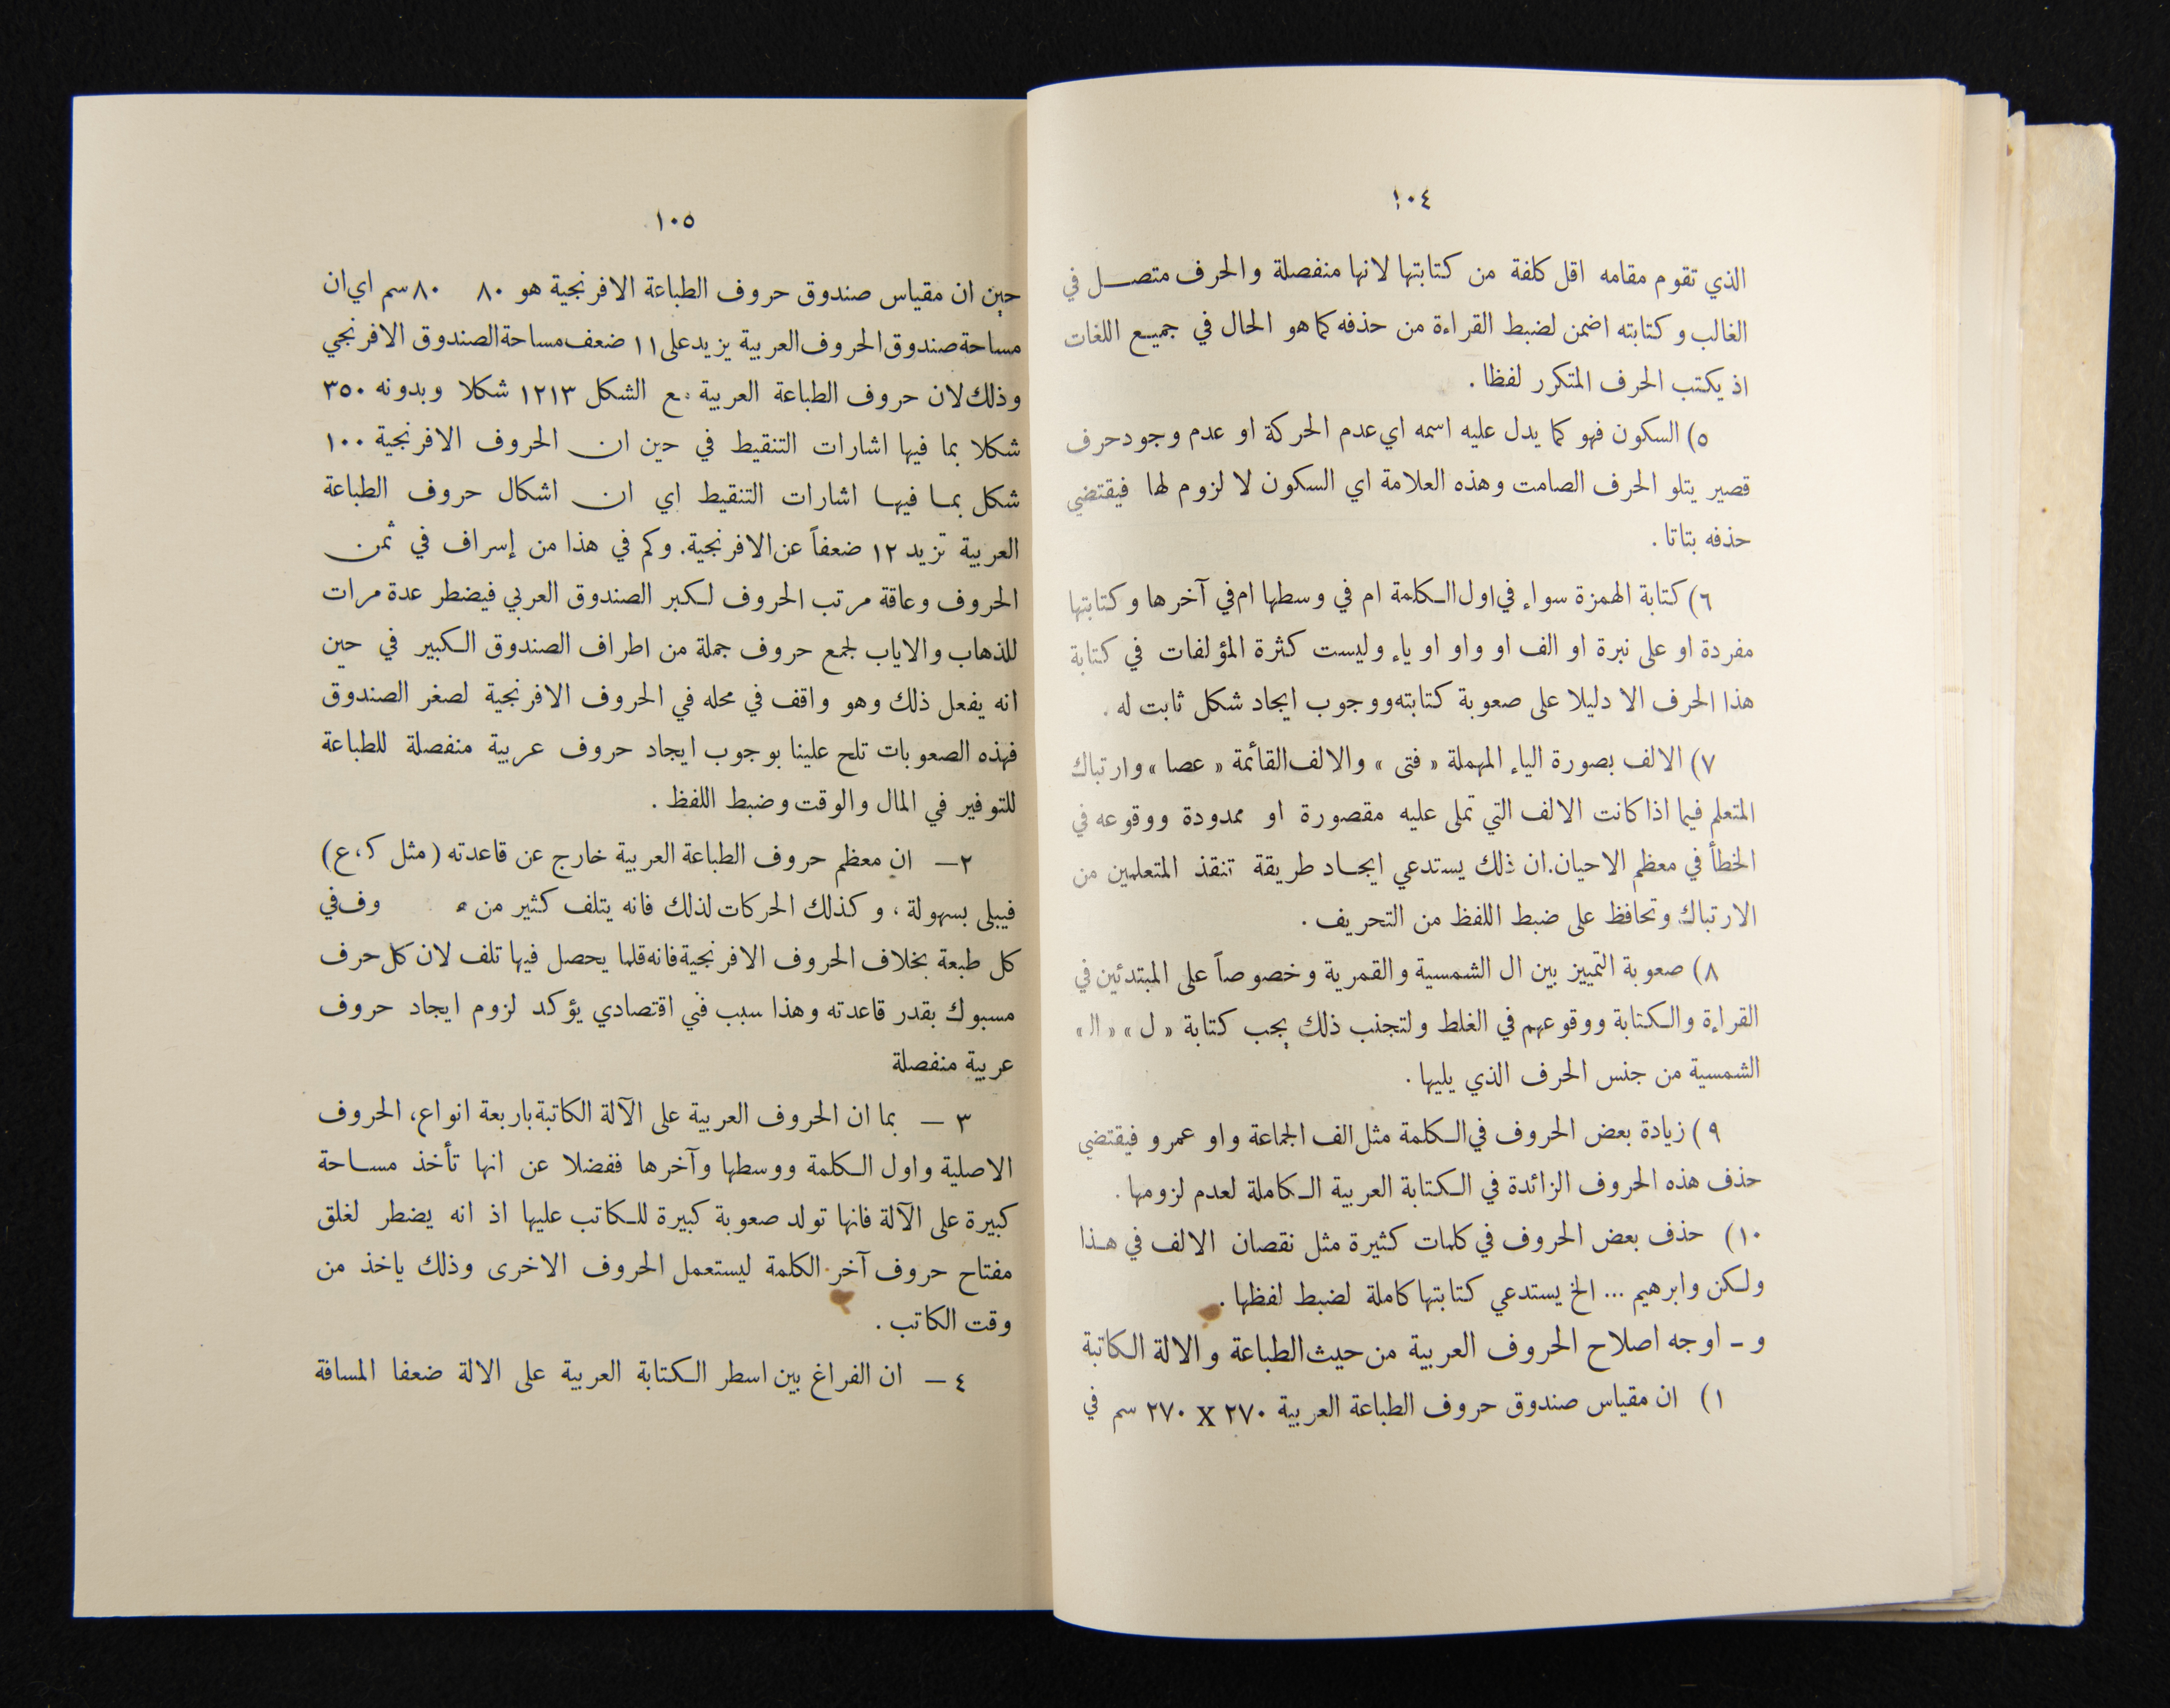 ١٠٤
الذي تقوم مقامه اقل كلفة من كتابتها لانها منفصلة والحرف متصل في
الغالب وكتابته اضمن لضبط القراءة من حذفه كما هو الحال في جميع اللغات
اذ يكتب الحرف المتكرر لفظا .
٥) السكون فهو كما يدل عليه اسمه اي عدم الحركة او عدم وجود حرف
قصير يتلو الحرف الصامت وهذه العلامة اي السكون لا لزوم لها فيقتضي
حذفه بتاتا .
٦) كتابة الهمزة سواء في اول الكلمة ام في وسطها ام في آخرها وكتابتها
مفردة او على نبرة او الف او واو او ياء وليست كثرة المؤلفات في كتابة
هذا الحرف الا دليلا على صعوبة كتابته ووجوب ايجاد شكل ثابت له .
٧) الالف بصورة الياء المهملة « فتى » والالف القائمة « عصا » وارتباك
المتعلم فيما اذا كانت الالف التي تملى عليه مقصورة او ممدودة ووقوعه في
الخطأ في معظم الاحيان. ان ذلك يستدعي ايجاد طريقة تنقذ المتعلمين من
الارتباك وتحافظ على ضبط اللفظ من التحريف .
٨) صعوبة التمييز بين ال الشمسية والقمرية وخصوصاً على المبتدئين في
القراءة والكتابة ووقوعهم في الغلط ولتجنب ذلك يجب كتابة « ل » « ال »
الشمسية من جنس الحرف الذي يليها .
٩) زيادة بعض الحروف في الكلمة مثل الف الجماعة واو عمرو فيقتضي
حذف هذه الحروف الزائدة في الكتابة العربية الكاملة لعدم لزومها .
١٠) حذف بعض الحروف في كلمات كثيرة مثل نقصان الالف في هذا
ولكن وابرهيم ... الخ يستدعي كتابتها كاملة لضبط لفظها .
و - اوجه اصلاح الحروف العربية من حيث الطباعة والالة الكاتبة
١) ان مقياس صندوق حروف الطباعة العربية ٢٧٠ X ٢٧٠ سم في
١٠٥
حين ان مقياس صندوق حروف الطباعة الافرنجية هو ٨٠ ٨٠ سم اي ان
مساحة صندوق الحروف العربية يزيد على ١١ ضعف مساحة الصندوق الافرنجي
وذلك لان حروف الطباعة العربية مع الشكل ١٢١٣ شكلا وبدونه ٣٥٠
شكلا بما فيها اشارات التنقيط في حين ان الحروف الافرنجية ١٠٠
شكل بما فيها اشارات التنقيط اي ان اشكال حروف الطباعة
العربية تزيد ١٢ ضعفاً عن الافرنجية. وكم في هذا من إسراف في ثمن
الحروف وعاقة مرتب الحروف لكبر الصندوق العربي فيضطر عدة مرات
للذهاب والاياب لجمع حروف جملة من اطراف الصندوق الكبير في حين
انه يفعل ذلك وهو واقف في محله في الحروف الافرنجية لصغر الصندوق
فهذه الصعوبات تلح علينا بوجوب ايجاد حروف عربية منفصلة للطباعة
للتوفير في المال والوقت وضبط اللفظ .
٢— ان معظم حروف الطباعة العربية خارج عن قاعدته ( مثل ك ، ع )
فيبلى بسهولة ، وكذلك الحركات لذلك فانه يتلف كثير من وف في
كل طبعة بخلاف الحروف الافرنجية فانه قلما يحصل فيها تلف لان كل حرف
مسبوك بقدر قاعدته وهذا سبب فني اقتصادي يؤكد لزوم ايجاد حروف
عربية منفصلة
٣ — بما ان الحروف العربية على الآلة الكاتبة باربعة انواع، الحروف
الاصلية واول الكلمة ووسطها وآخرها ففضلا عن انها تأخذ مساحة
كبيرة على الآلة فانها تولد صعوبة كبيرة للكاتب عليها اذ انه يضطر لغلق
مفتاح حروف آخر الكلمة ليستعمل الحروف الاخرى وذلك ياخذ من
وقت الكاتب .
٤ — ان الفراغ بين اسطر الكتابة العربية على الالة ضعفا المسافة